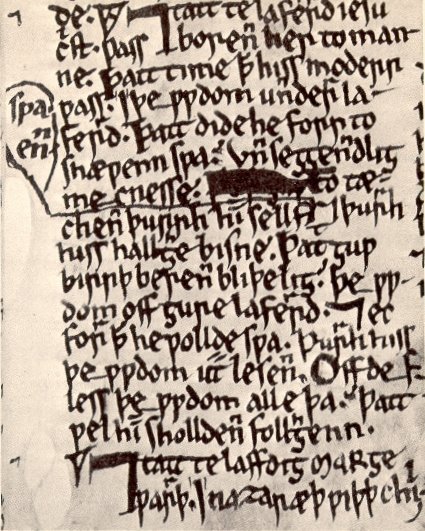 de. ⁊ tatt te laferrd iesu
crist. wass borenn her to man
ne. þatt time þ hiss moderr
wass. I þewwdom underr la
ferrd. þatt dide he forr to
shæwenn swa. Unnseggenndliȝ
mecnesse. to tæ
chenn þurrh himm sellf ⁊ þurrh
hiss hallȝhe bisne. þatt ȝuw
birrþ berenn bliþeliȝ. þe ww
dom off ȝure laferrd. ⁊ ec
forr þ he wollde swa. þurrh hiss
þewwdom uss lesenn. Off defless
less þewwdom alle þa. þatt
wel himm sholldenn follȝhenn.
⁊ tatt te laffdiȝ marȝe
warrþ. I nazaræþ wiþþ child